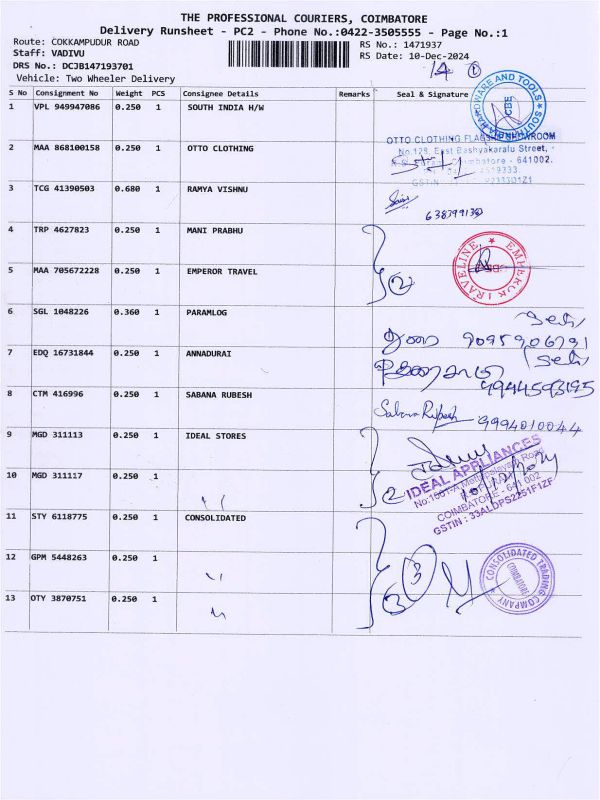 THE PROFESSIONAL COURIERS, COIMBATORE
Delivery Runsheet - PC2 - Phone No.:0422-3505555 - Page No.:1
Route: COKKAMPUDUR ROAD
RS No.: 1471937
Staff: VADIVU
RS Date: 10-Dec-2024
DRS No.: DCJB147193701
Vehicle: Two Wheeler Delivery
S No Consignment No Weight PCS Consignee Details Remarks Seal & Signature
1 VPL 949947086 0.250 1 SOUTH INDIA H/W
2 MAA 868100158 0.250 1 OTTO CLOTHING
OTTO CLOTHING
No.128, East Bashyakaralu Street,
Coimbatore - 641002.
3 TCG 41390503 0.680 1 RAMYA VISHNU
4 TRP 4627823 0.250 1 MANI PRABHU
5 MAA 705672228 0.250 1 EMPEROR TRAVEL
2
6 SGL 1048226 0.360 1 PARAMLOG
9095906791
7 EDQ 16731844 0.250 1 ANNADURAI
9944593195
8 CTM 416996 0.250 1 SABANA RUBESH
Sabana Rubesh 9994010044
9 MGD 311113 0.250 1 IDEAL STORES
IDEAL APPLIANCES
10 MGD 311117 0.250 1 "
2
10/12/24
COIMBATORE - 641 002
11 STY 6118775 0.250 1 CONSOLIDATED
12 GPM 5448263 0.250 1 "
3
CONSOLIDATED TRADING COMPANY
COIMBATORE
13 OTY 3870751 0.250 1 "
3